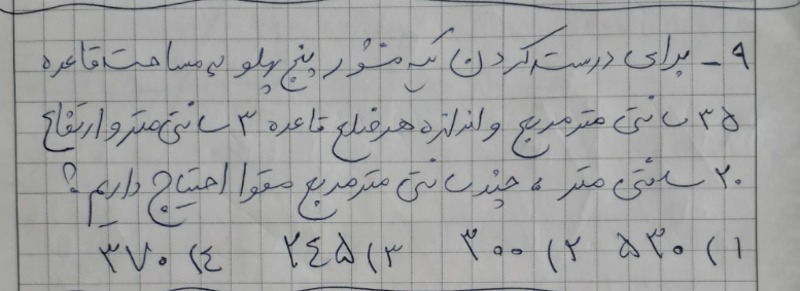 ۹ _ برای درست کردن یک منشور پنج پهلو به مساحت قاعده
۳۵ سانتی متر مربع و اندازه هر ضلع قاعده ۳ سانتی متر و ارتفاع
۲۰ سانتی متر ، چند سانتی متر مربع مقوا احتیاج داریم ؟
۱ ) ۵۳۰ ۲ ) ۳۰۰ ۳ ) ۲۴۵ ۴ ) ۳۷۰